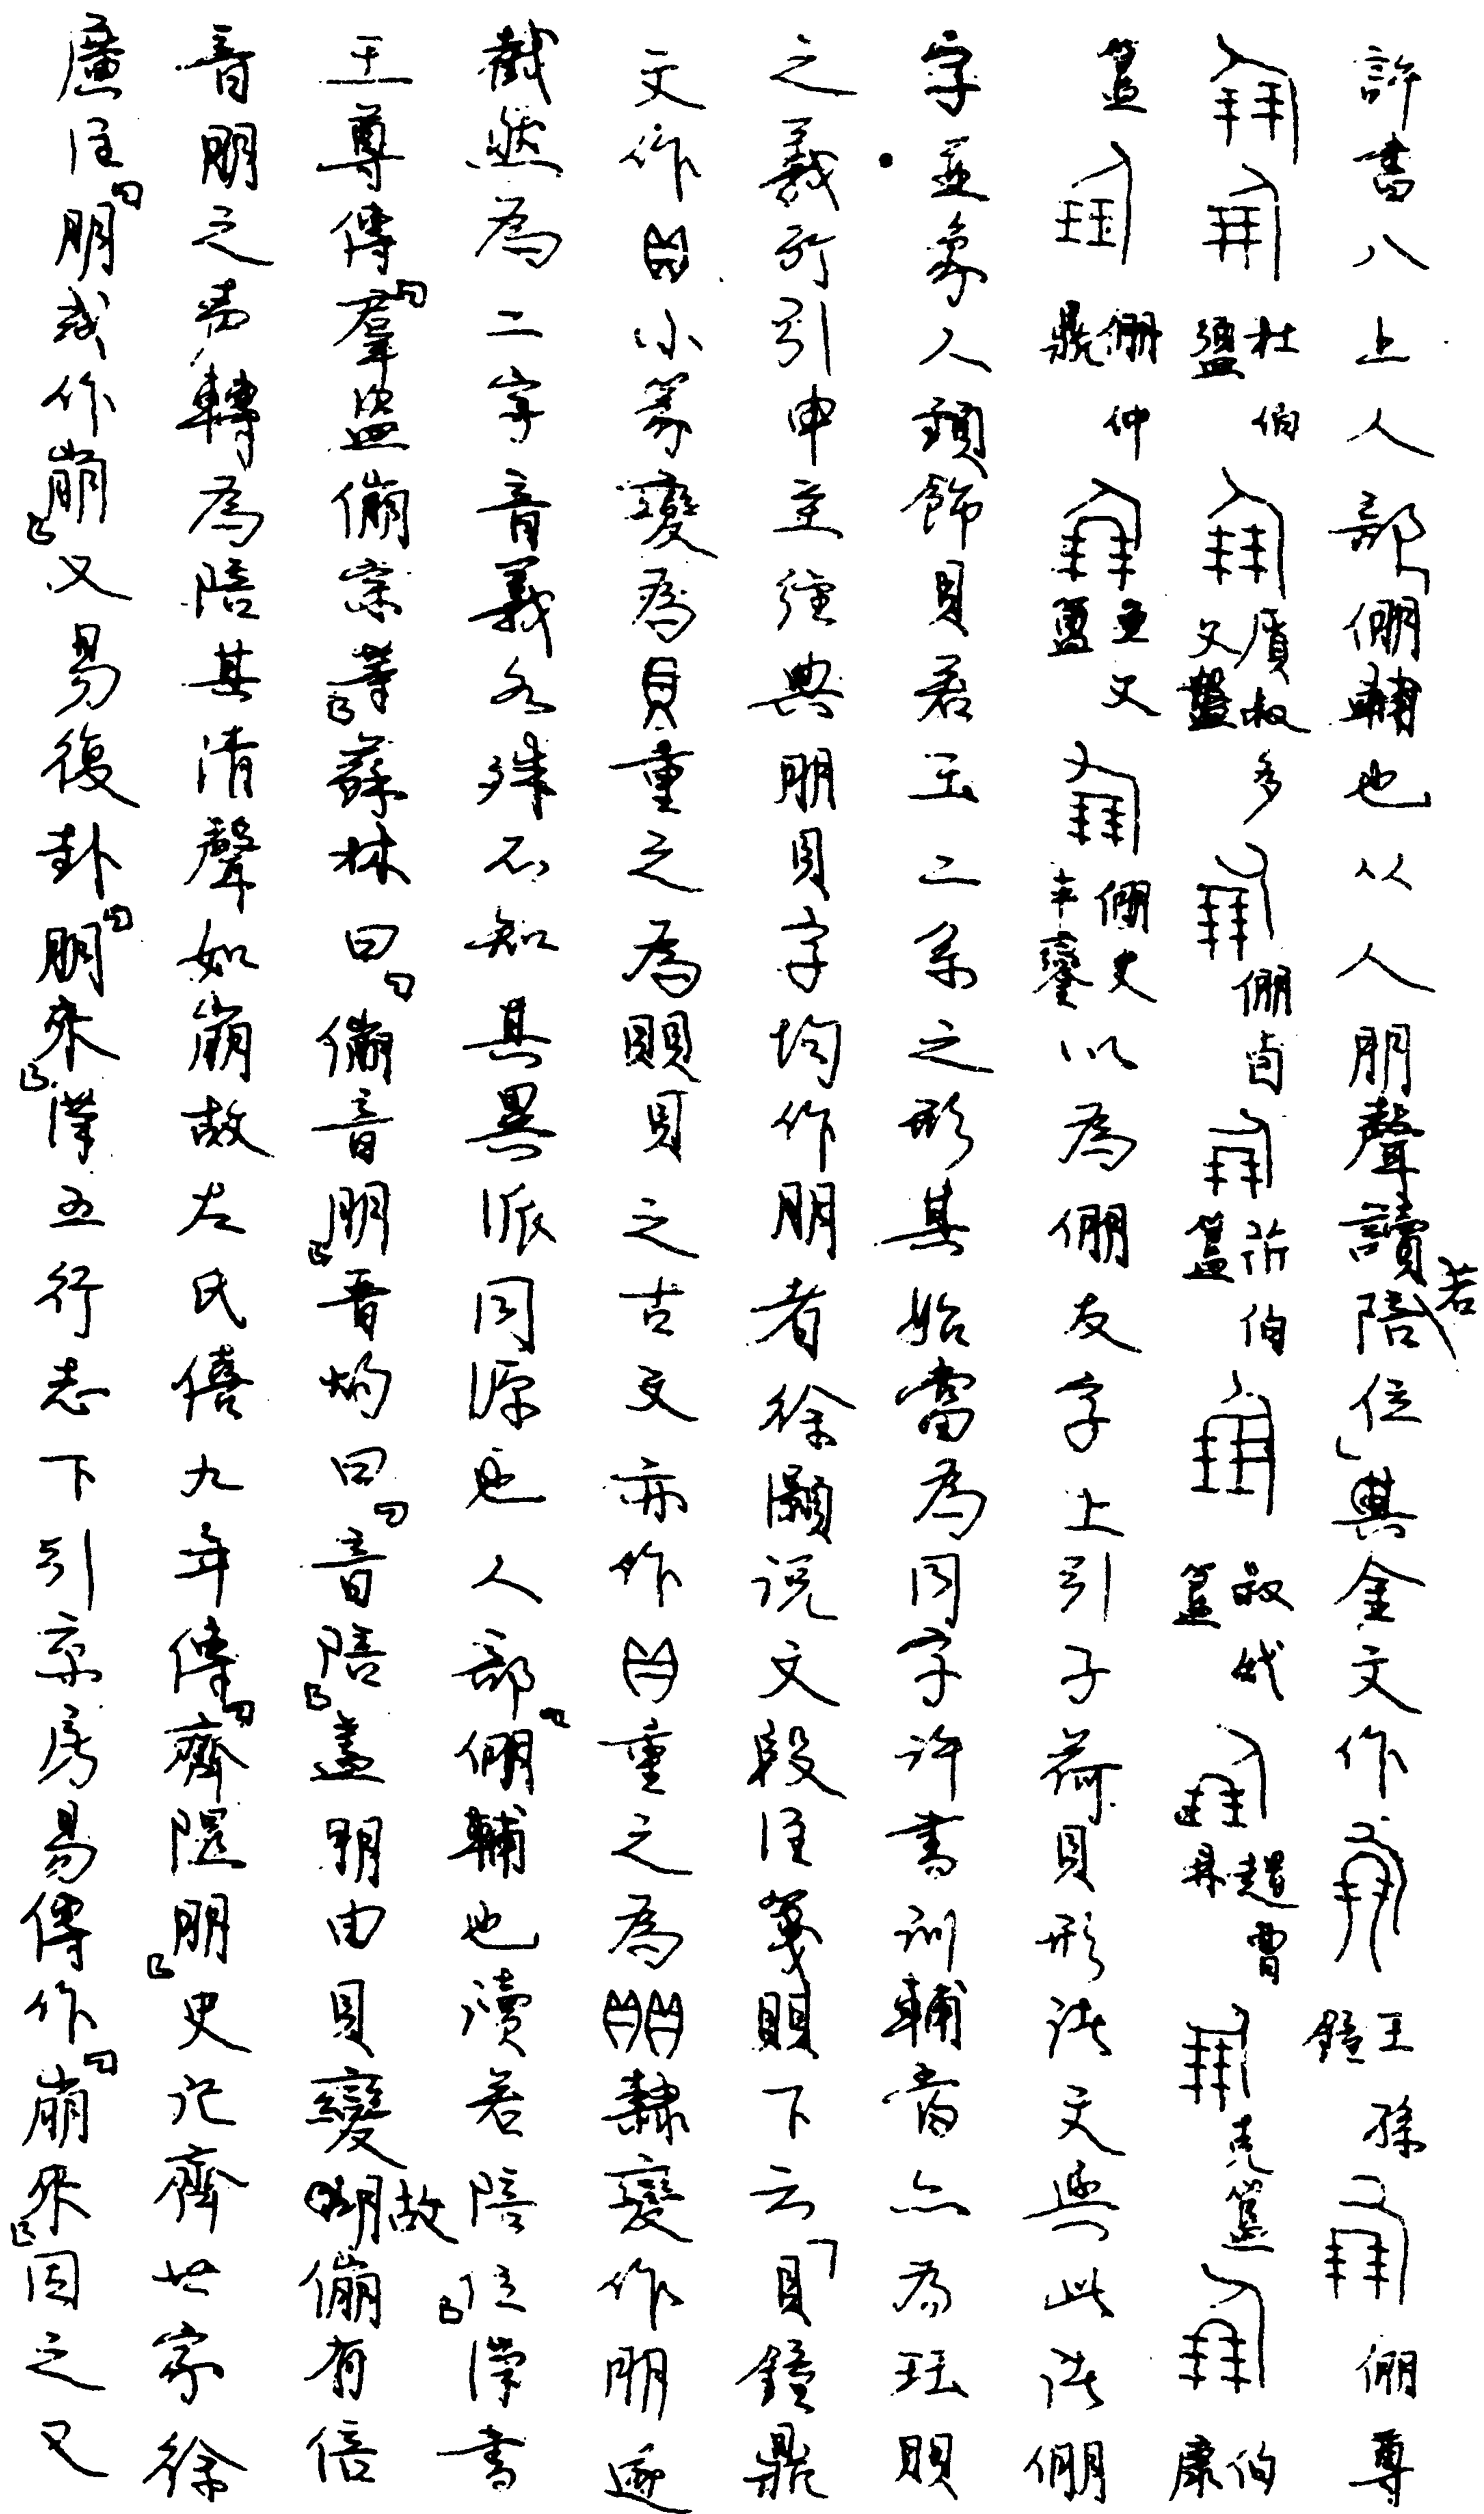 許書八上人部倗輔也从人朋聲讀若陪位」與金文作 王孫鐘 倗尊
杜伯盨 叔多父盤 倗卣 伯簋 簋 趞曹鼎 克簋 康伯
簋 倗仲鼎 文簋 倗史車鑾 以為倗友字上引子荷貝形諸文與此諸倗
字並象人頸飾貝若玉二系之形其始當為同字許書訓輔者亦為玨賏
之義所引申至經典朋貝字均作朋者徐灝說文段注箋賏下云「貝鐘鼎
文作 小篆變為貝重之為賏貝之古文亦作 重之為 隸變作朋遂
截然為二字音義各殊不知其異派同源也人部「倗輔也讀若陪位」漢書
王尊傳「羣盜傰宗等」蘇林曰「傰音朋」晉灼曰「音陪」蓋朋由貝變故朋傰有倍
音朋之為轉為陪其清聲如崩故左氏僖九年傳「齊隰朋」史記齊世家徐
廣注「朋或作崩」又易復卦「朋來」漢五行志下引京房易傳作「崩來」因之又